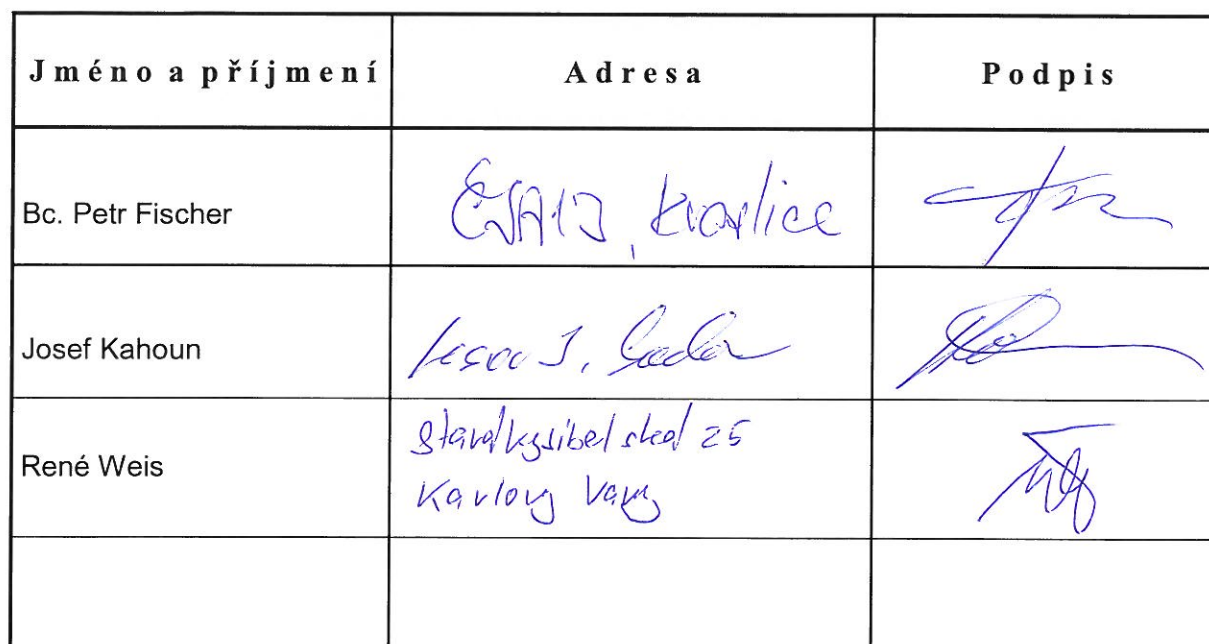 Jméno a příjmení Adresa Podpis
Bc. Petr Fischer Kraslice
Josef Kahoun
René Weis Stará Kysibelská 25
Karlovy Vary